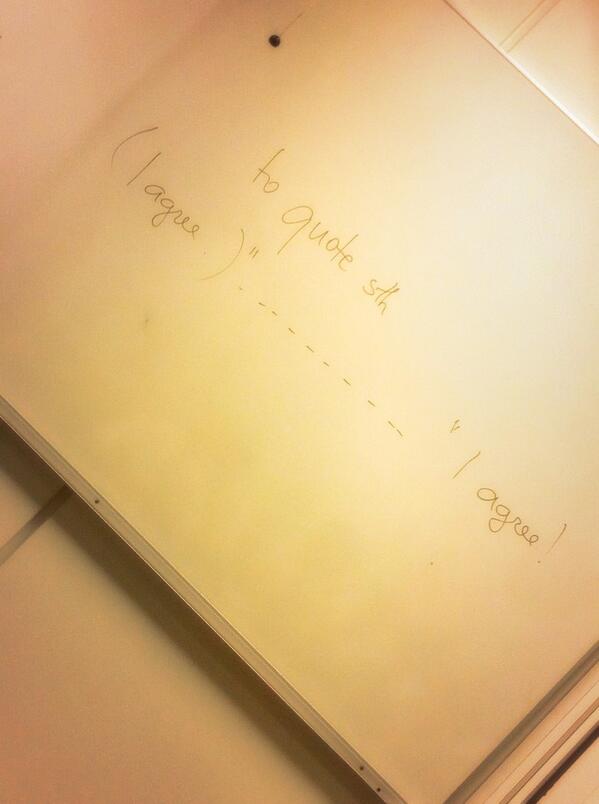 to quote sth
(I agree )" - - - - - - - - - " I agree!